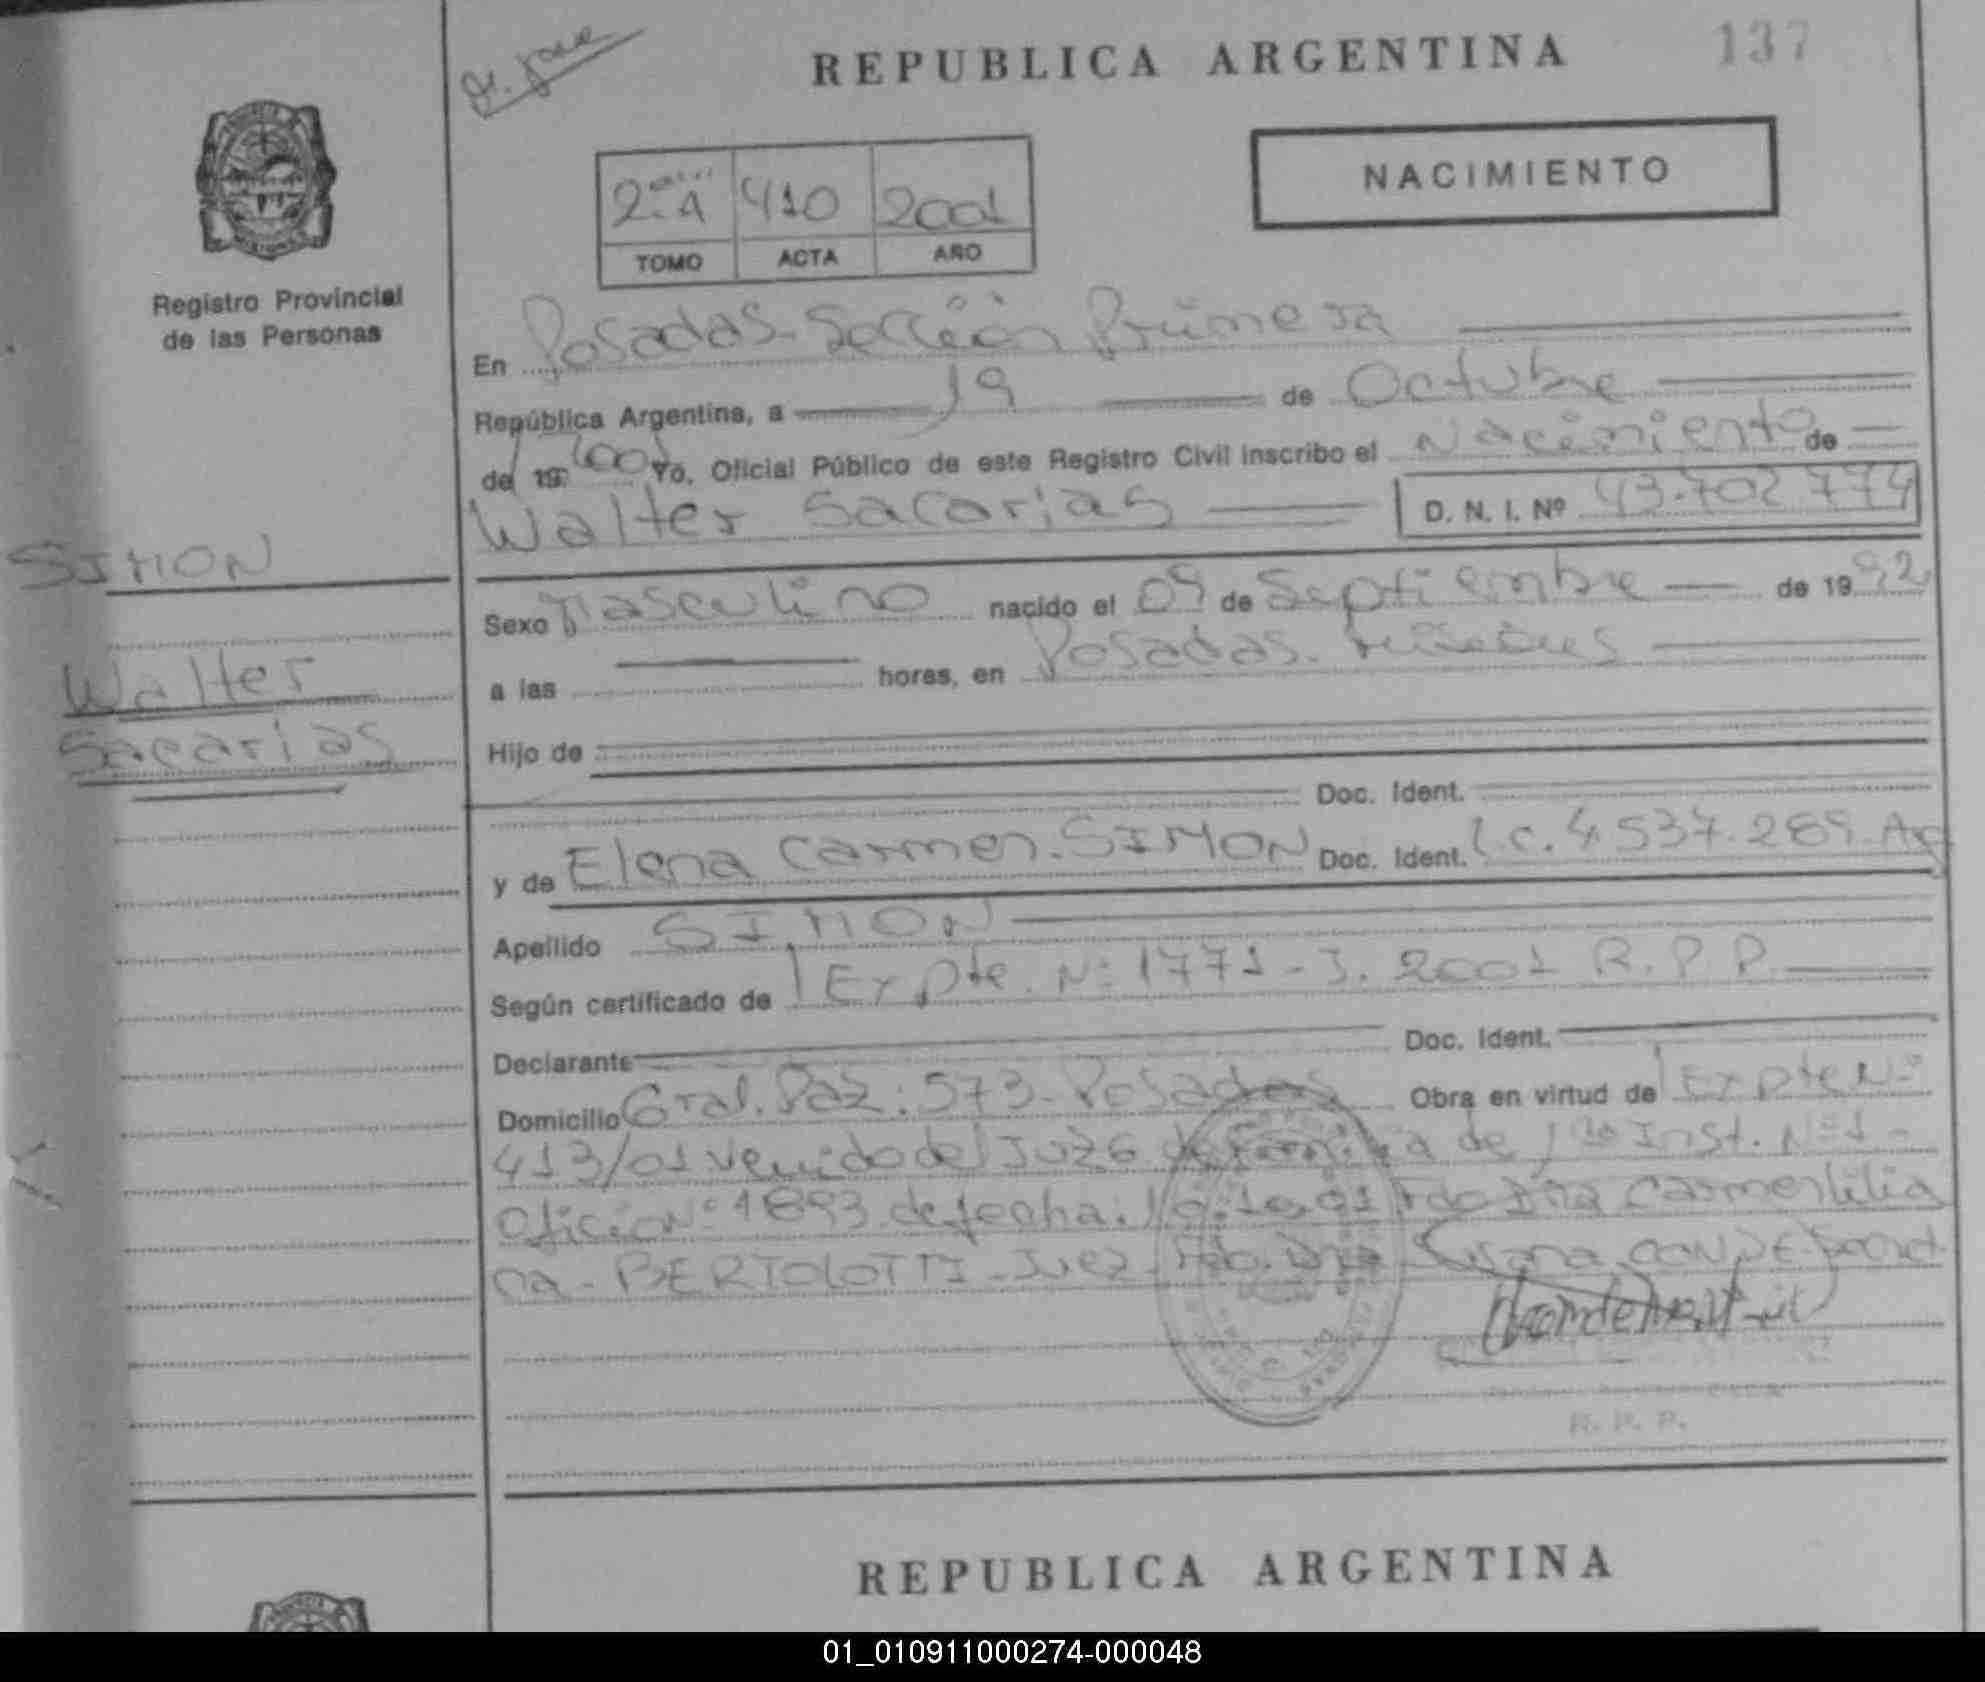 REPUBLICA ARGENTINA
137
NACIMIENTO
2º A 410 2001
TOMO ACTA AÑO
Registro Provincial
de las Personas
En Posadas - Sección Primera
República Argentina, a 19 de Octubre
de 2001 Yo, Oficial Público de este Registro Civil inscribo el Nacimiento de
Walter Sacarias D. N. I. Nº 43.702 774
SIMON
Walter
Sacarias
Sexo Masculino nacido el 09 de Septiembre de 1992
a las horas, en Posadas - Misiones
Hijo de
Doc. Ident.
y de Elena Carmen SIMON Doc. Ident. L C. 4 537.289. Ag
Apellido SIMON
Según certificado de Expte. Nº 1771 - J. 2001 R.P.P
Declarante Doc. Ident.
Domicilio Gral. Paz: 573 - Posadas Obra en virtud de Expte Nº
413/01 venido del Juzg de Familia de 1ª Inst. Nº 1 -
Oficio Nº 1893 de fecha: Fdo Dra Carmen Lilia
na - BERTOLOTTI - Juez - Fdo. Dra Susana CONDE
R. P. P.
REPUBLICA ARGENTINA
01_010911000274-000048